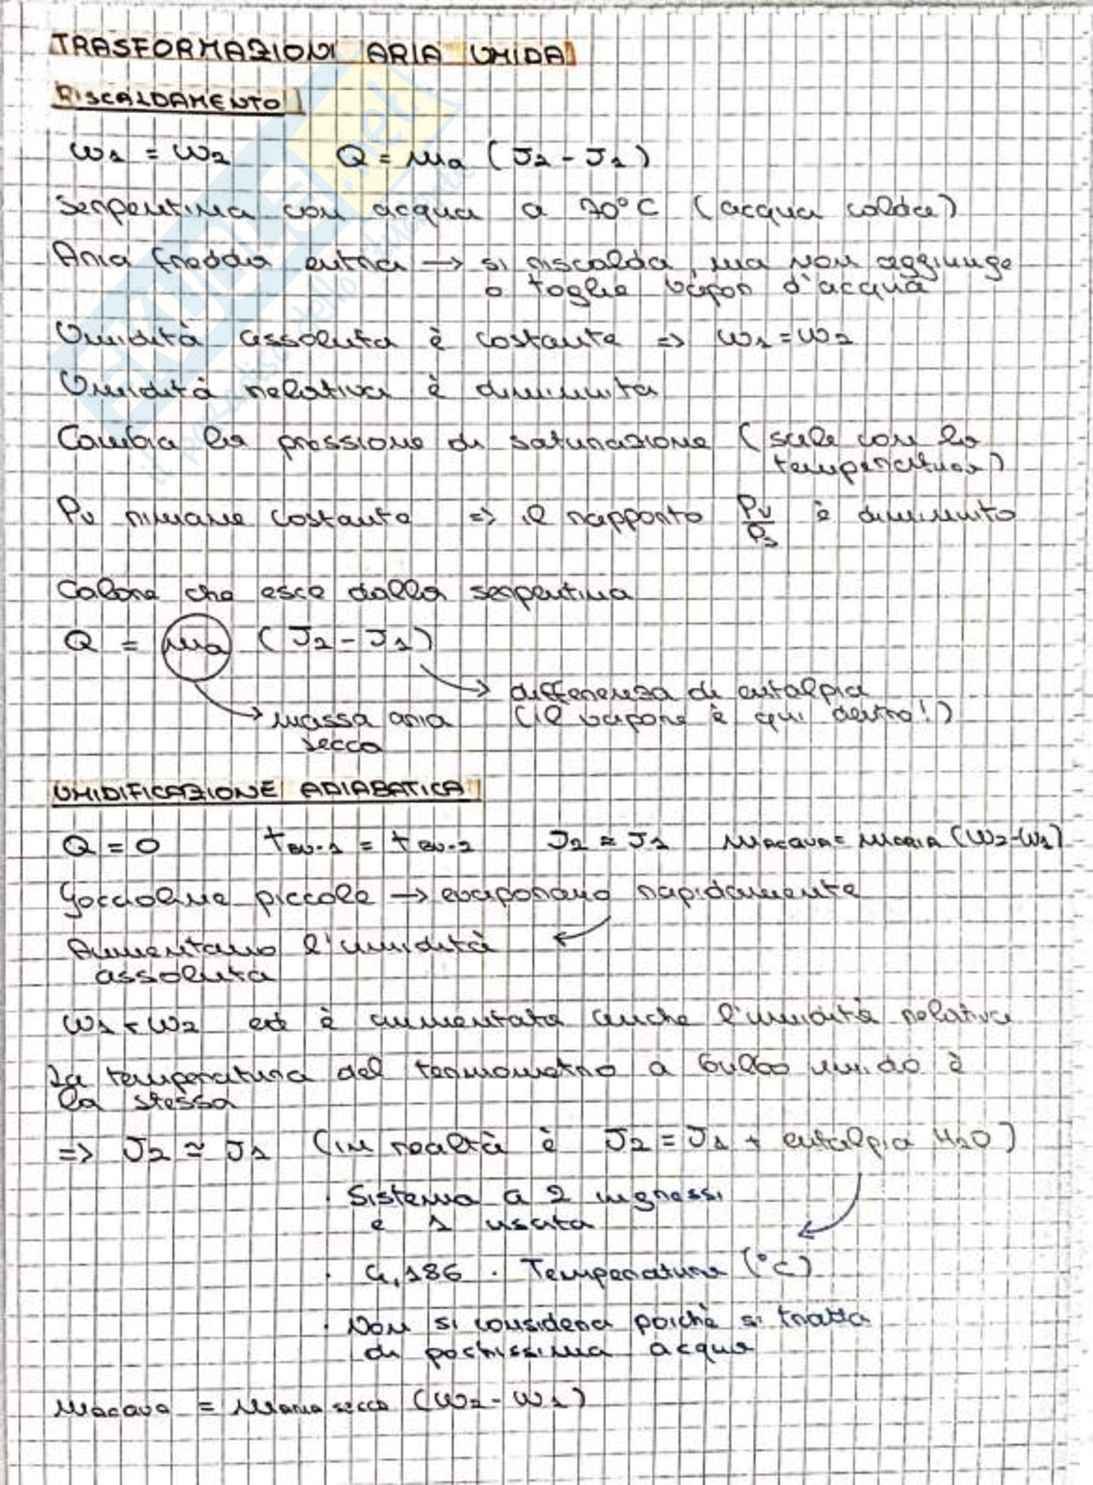 TRASFORMAZIONI ARIA UMIDA
RISCALDAMENTO
ω1 = ω2 Q = ma (J2 - J1)
Serpentina con acqua a 70°C (acqua calda)
Aria fredda entra → si riscalda, ma non aggiunge
o toglie vapor d'acqua
Umidità assoluta è costante => ω1 = ω2
Umidità relativa è diminuita
Cambia la pressione di saturazione (sale con la
temperatura)
Pv rimane costante => il rapporto Pv/Ps è diminuito
Calore che esce dalla serpentina
Q = ma (J2 - J1)
differenza di entalpia
massa aria (il vapore è qui dentro!)
secca
UMIDIFICAZIONE ADIABATICA
Q = 0 tBU-1 = tBU-2 J2 ≅ J1 MACQUA = MARIA (ω2-ω1)
Goccioline piccole → evaporano rapidamente
Aumentano l'umidità
assoluta
ω1 < ω2 ed è aumentata anche l'umidità relativa
La temperatura del termometro a bulbo umido è
la stessa
=> J2 ≃ J1 (in realtà è J2 = J1 + entalpia H2O)
· Sistema a 2 ingressi
e 1 uscita
· 4,186 · Temperatura (°C)
· Non si considera poichè si tratta
di pochissima acqua
macqua = maria secca (ω2 - ω1)